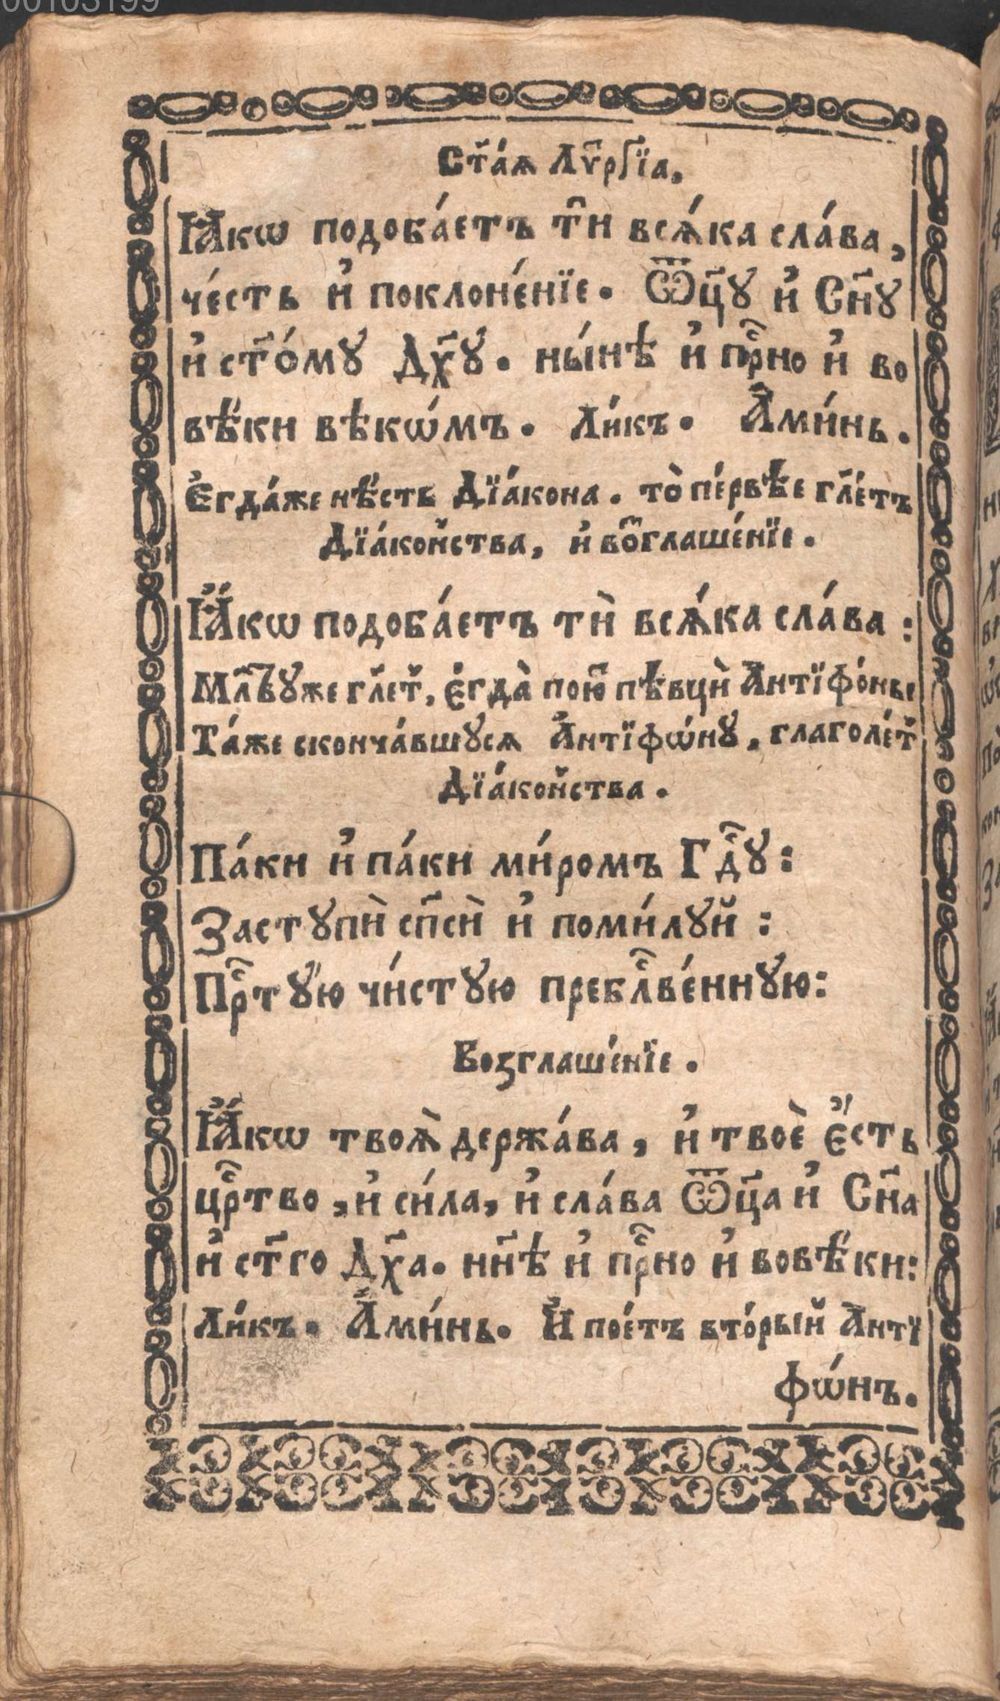 00103199
Ст҃а́ѧ Лѵ҃ргїа,
Ꙗ҆́кѡ подоба́етъ ти҆ всѧ́ка сла́ва,
че́сть и҆ поклоне́нїе. Ѿц҃ꙋ и҆ Сн҃ꙋ
и҆ ст҃о́мꙋ Дх҃ꙋ. ны́нѣ и҆ пр҃но и҆ во
вѣ́ки вѣкѡ́мъ. Ли́къ. А҆ми́нь.
Є҆гда́же нѣ́сть Дїа́кона. то̀ пе́рвѣе гл҃етъ
Дїа́конства, и҆ возглаше́нїе.
Ꙗ҆́кѡ подоба́етъ тѝ всѧ́ка сла́ва:
Мл҃вꙋже гл҃ет, є҆гда̀ пою пѣвцы̀ Антїфо́нъ
Та́же сконча́вшꙋсѧ А҆нтїфѡ́нꙋ, глаголе́т
Дїа́конства.
Па́ки и҆ па́ки ми́ромъ Гдⷭ҇ꙋ:
Застꙋпѝ сп҃сѝ и҆ поми́лꙋй:
Прⷭ҇тꙋ́ю чи́стꙋю пребл҃ве́ннꙋю:
Возглаше́нїе.
Ꙗ҆́кѡ твоѧ̀ держа́ва, и҆ твоѐ є҆́сть
црⷭ҇тво, и҆ си́ла, и҆ сла́ва Ѿц҃а и҆ Сн҃а
и҆ ст҃го Дх҃а. нн҃ѣ и҆ прⷭ҇но и҆ вовѣ́ки:
Ли́къ. А҆ми́нь. И҆ пое́тъ вто́рый Антї
фѡ́нъ.